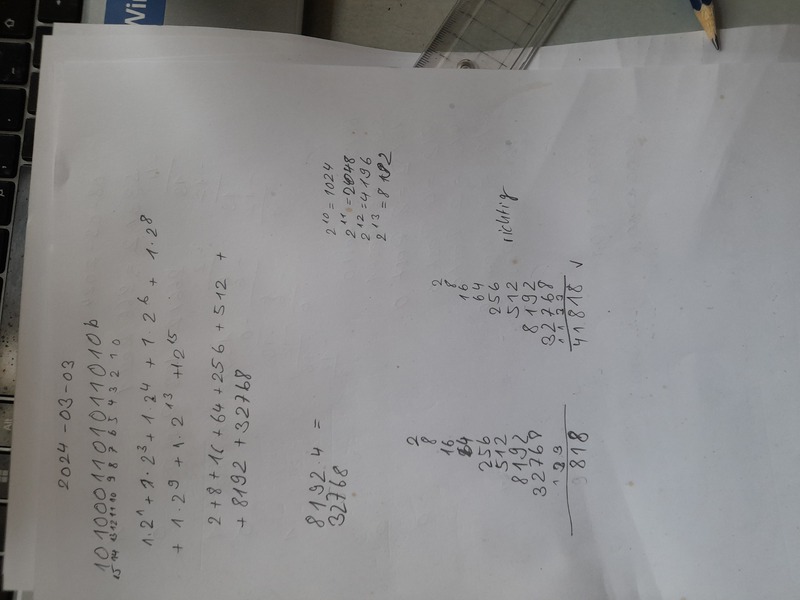 Alt
Win
2024-03-03
1010001101011010b
15 14 13 12 11 10 9 8 7 6 5 4 3 2 1 0
1·2^1 + 1·2^3 + 1·2^4 + 1·2^6 + 1·2^8
+ 1·2^9 + 1·2^13 + 1 2^15
2+8+16+64+256+512 +
+ 8192 + 32768
8192·4 =
32768
2^10 = 1024
2^11 = 2048
2^12 = 4196
2^13 = 8192
2
8
16
64
256
512
8192
32768
1 3 3
9818
2
8
16
64
256
512
8192
32768
1 1 3 3
41818 ✓
richtig